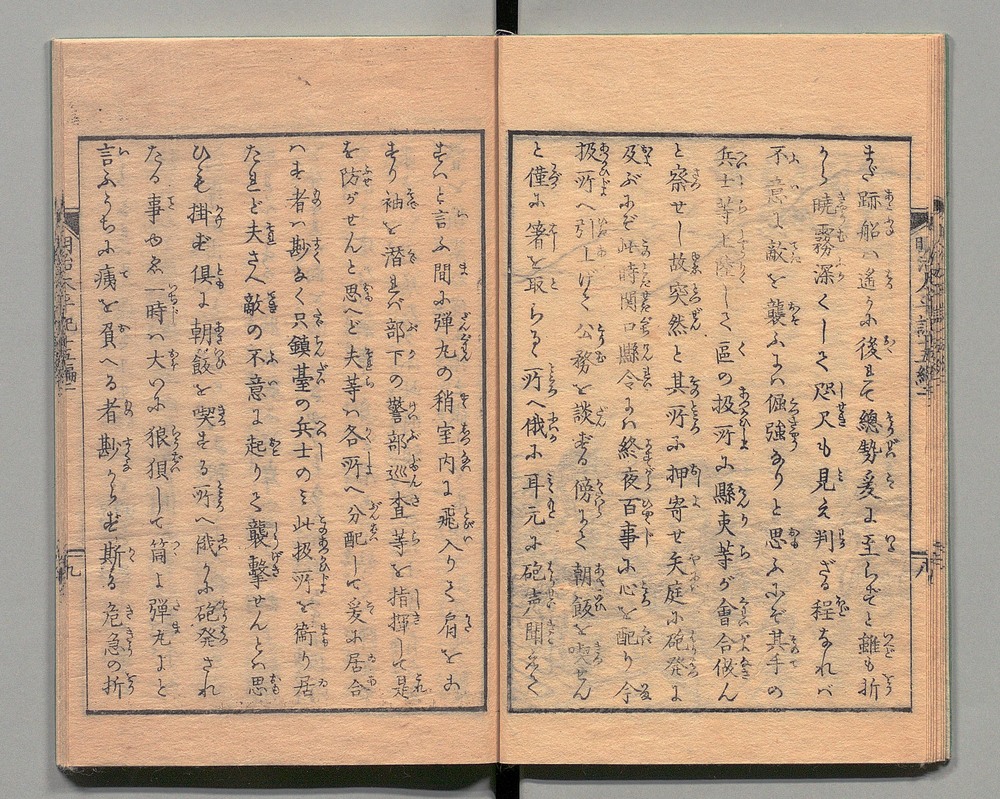 まだ跡船ハ遙かに後れて總勢爰に至らずと雖も折
から曉霧深くして咫尺も見え判ざる程なれバ
不意に敵を襲ふにハ倔強なりと思ふにぞ其手の
兵士等上陸して區の扱所に縣吏等が會合做ん
と察せし故突然と其所に押寄せ矢庭に砲発に
及ぶにぞ此時関口縣令にハ終夜百事に心を配り今
扱所へ引上げて公務を談ずる傍にて朝飯を喫せん
と僅に箸を取らるゝ所へ俄に耳元に砲声聞えて
すハと言ふ間に弾丸の稍室内に飛入りて肩をか
すり袖を潜れバ部下の警部巡査等を指揮して是
を防がせんと思へど夫等ハ各所へ分配して爰に居合
ハす者ハ尠なく只鎮臺の兵士のミ此扱所を衛り居
たれど夫さへ敵の不意に起りて襲撃せんとハ思
ひも掛ず倶に朝飯を喫する所へ俄かに砲発され
たる事ゆゑ一時ハ大いに狼狽して筒よ弾丸よと
言ふうちに痍を負へる者尠からず斯る危急の折
八
九